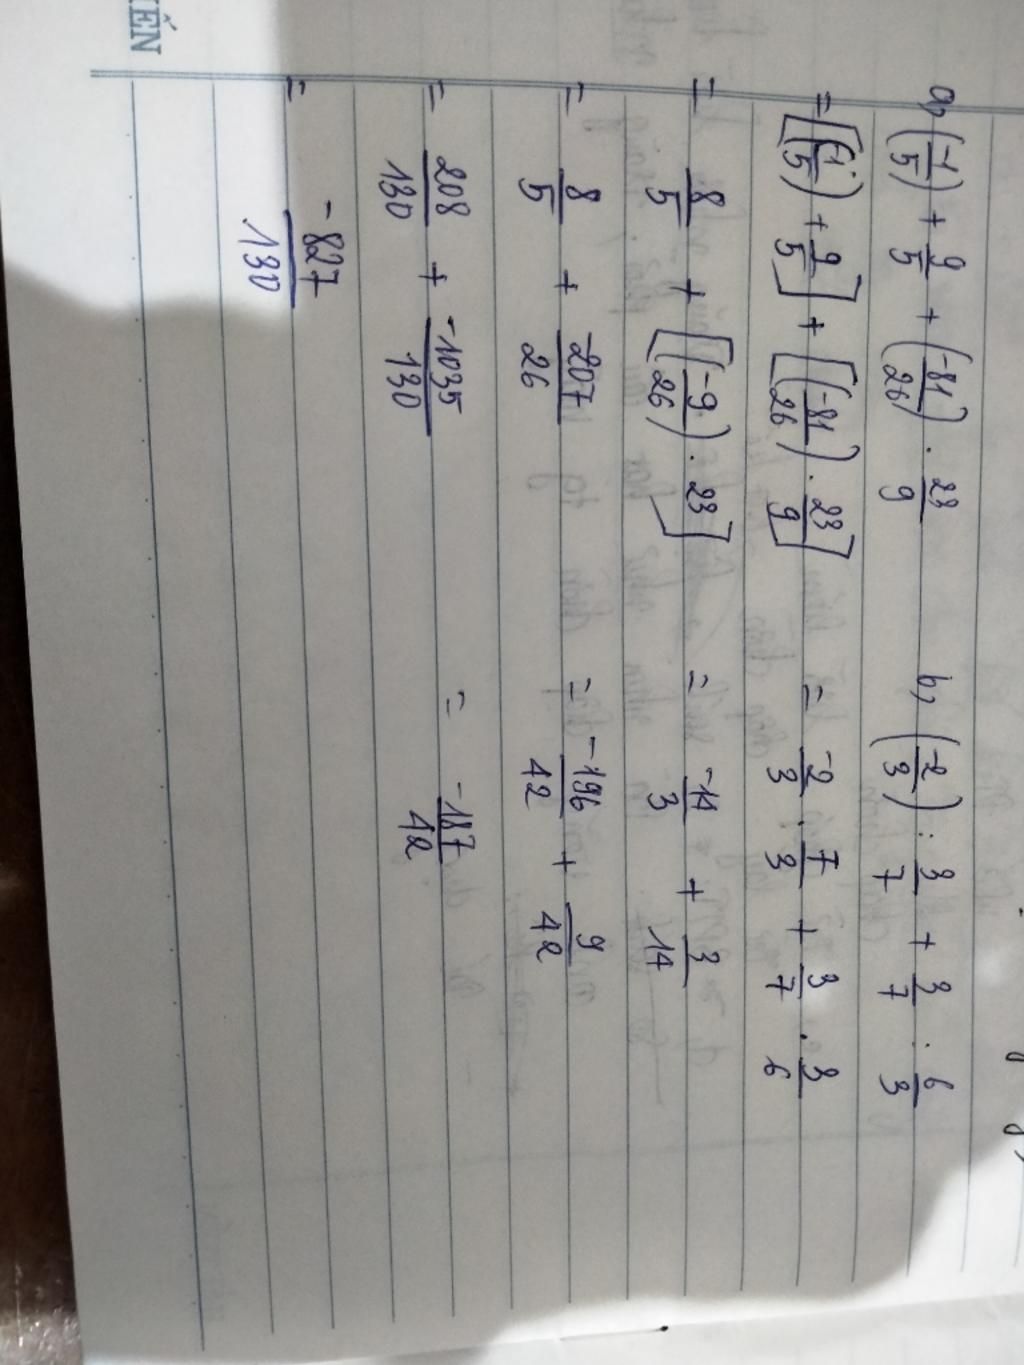 a, (-1/5) + 9/5 + (-81/26) . 23/9
= [(-1/5) + 9/5] + [(-81/26) . 23/9]
= 8/5 + [(-9/26) . 23]
= 8/5 + -207/26
= 208/130 + -1035/130
= -827/130
b, (-2/3) : 3/7 + 3/7 : 6/3
= -2/3 . 7/3 + 3/7 . 3/6
= -14/3 + 3/14
= -196/42 + 9/42
= -187/42
ẾN